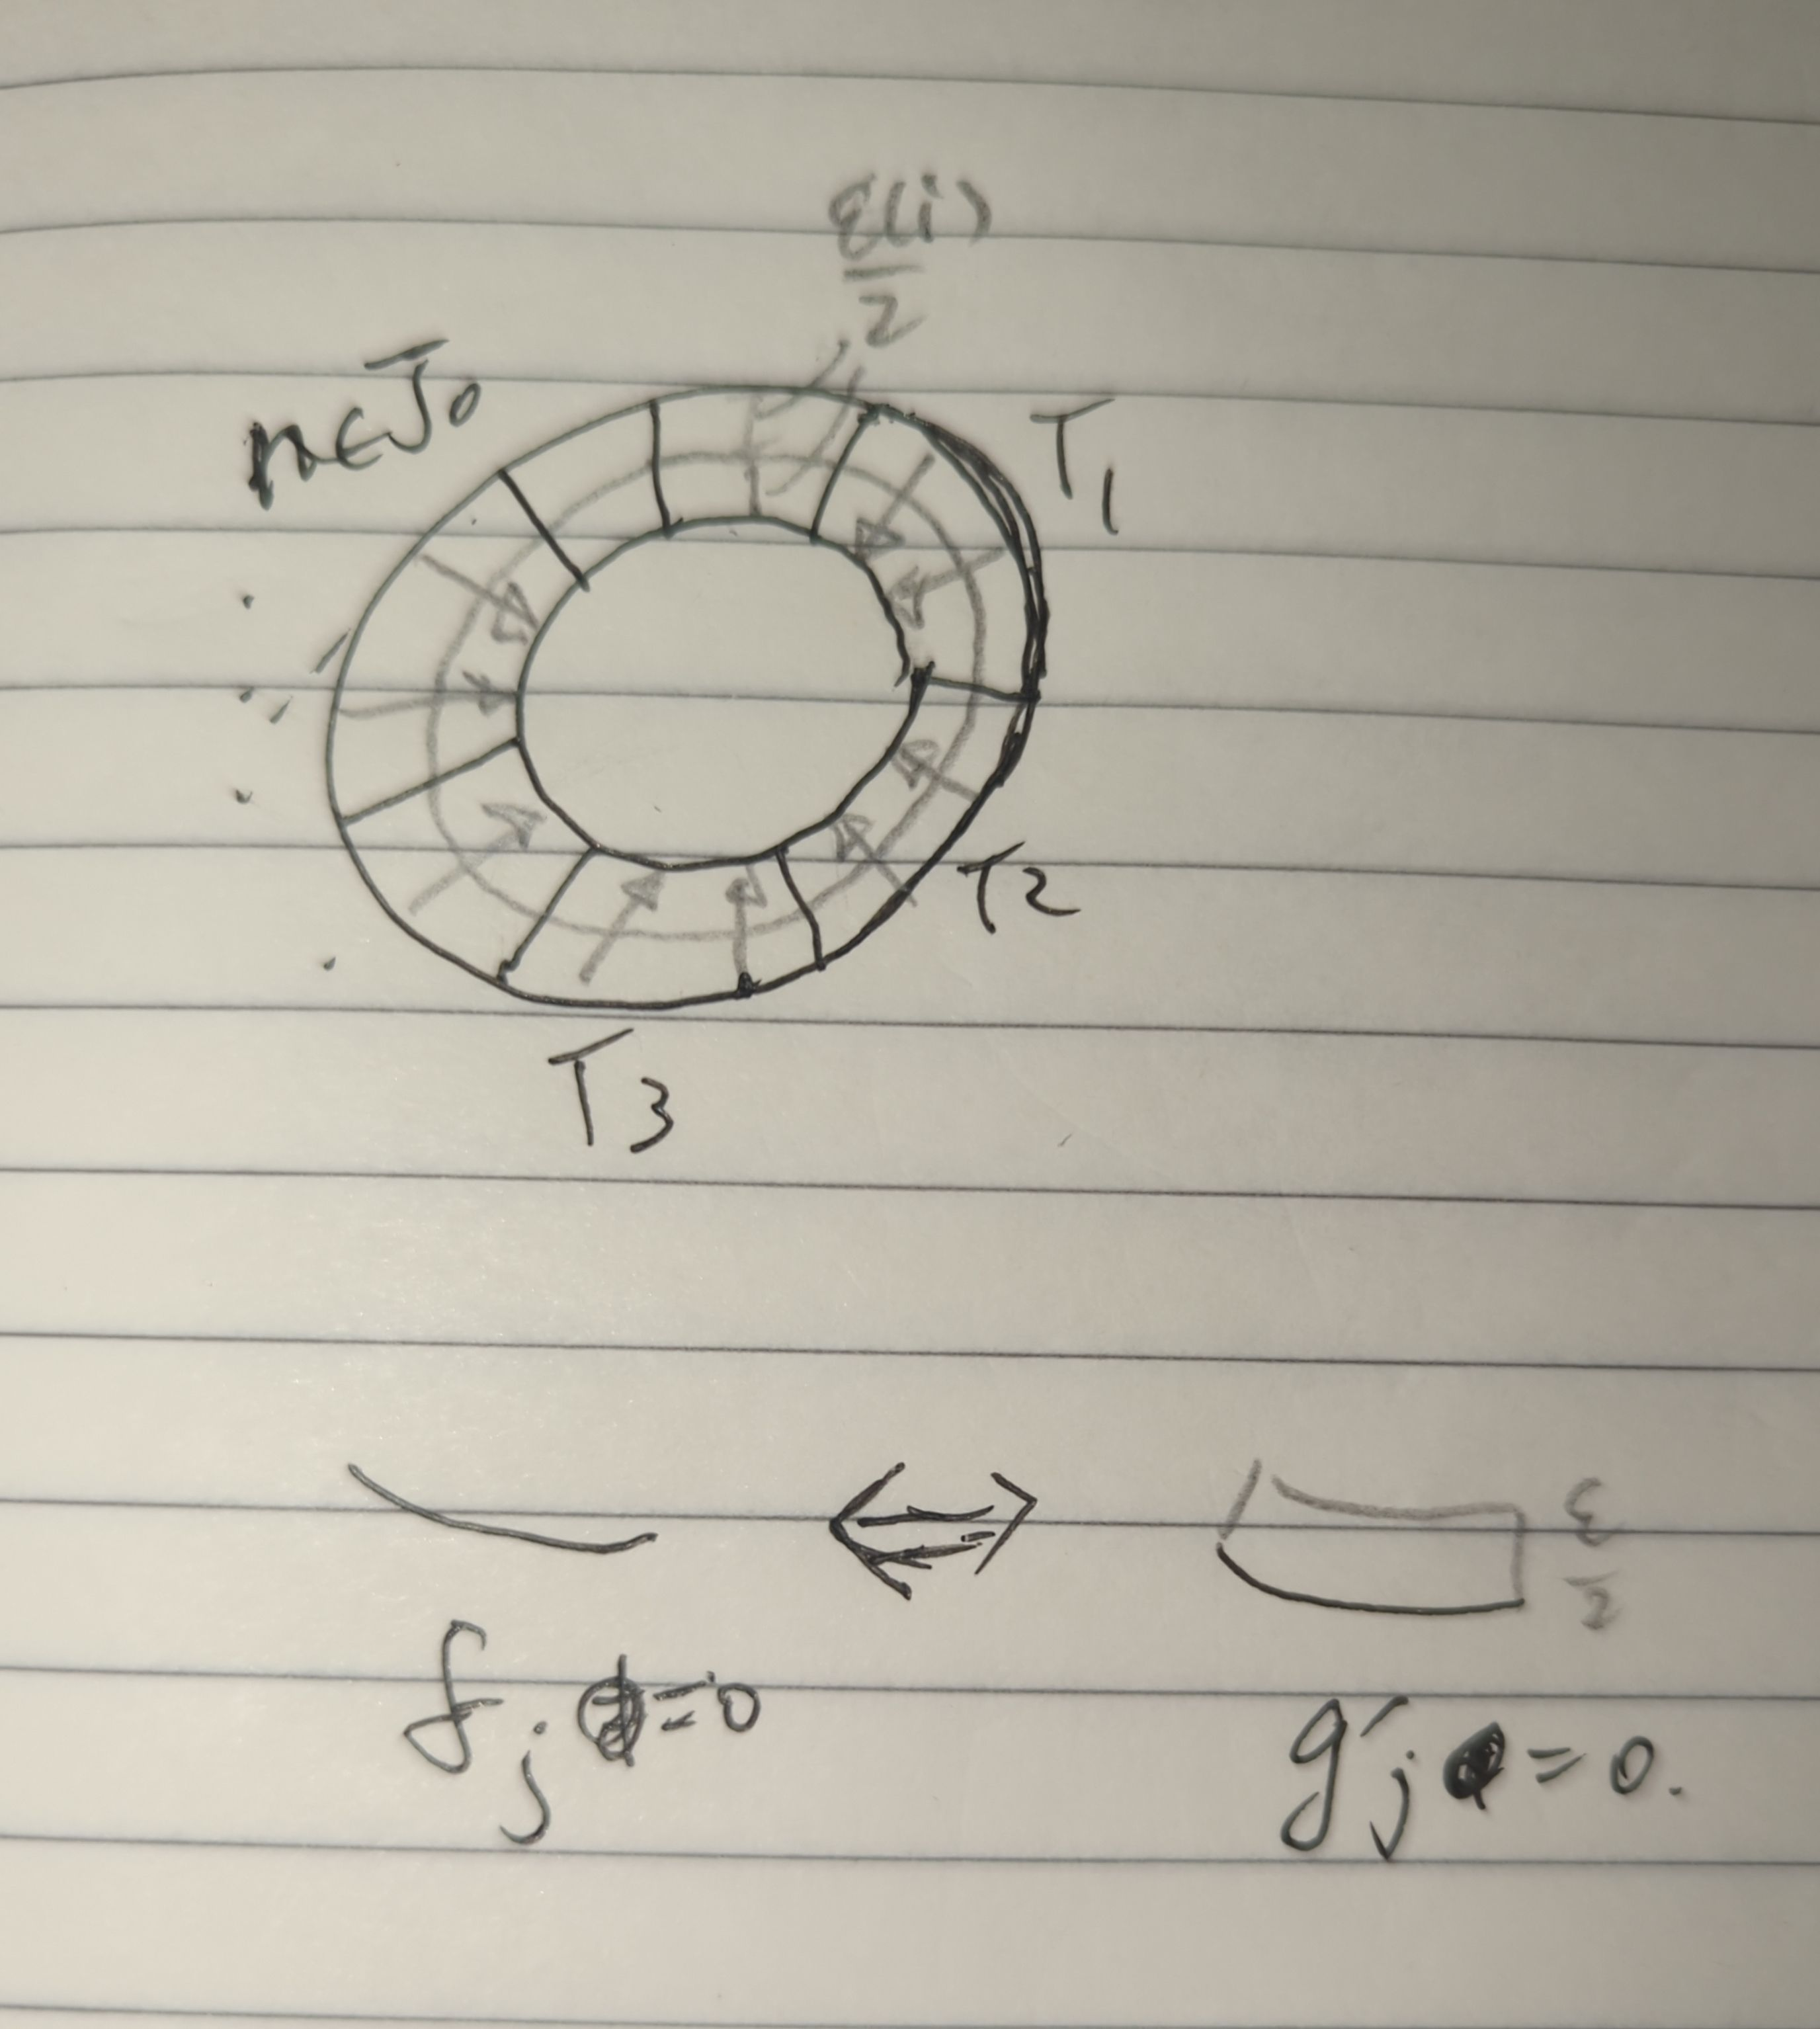 ε(i)
2
n∈J₀
T₁
T₂
T₃
⇔
ε
2
f j = 0
g' j = 0.